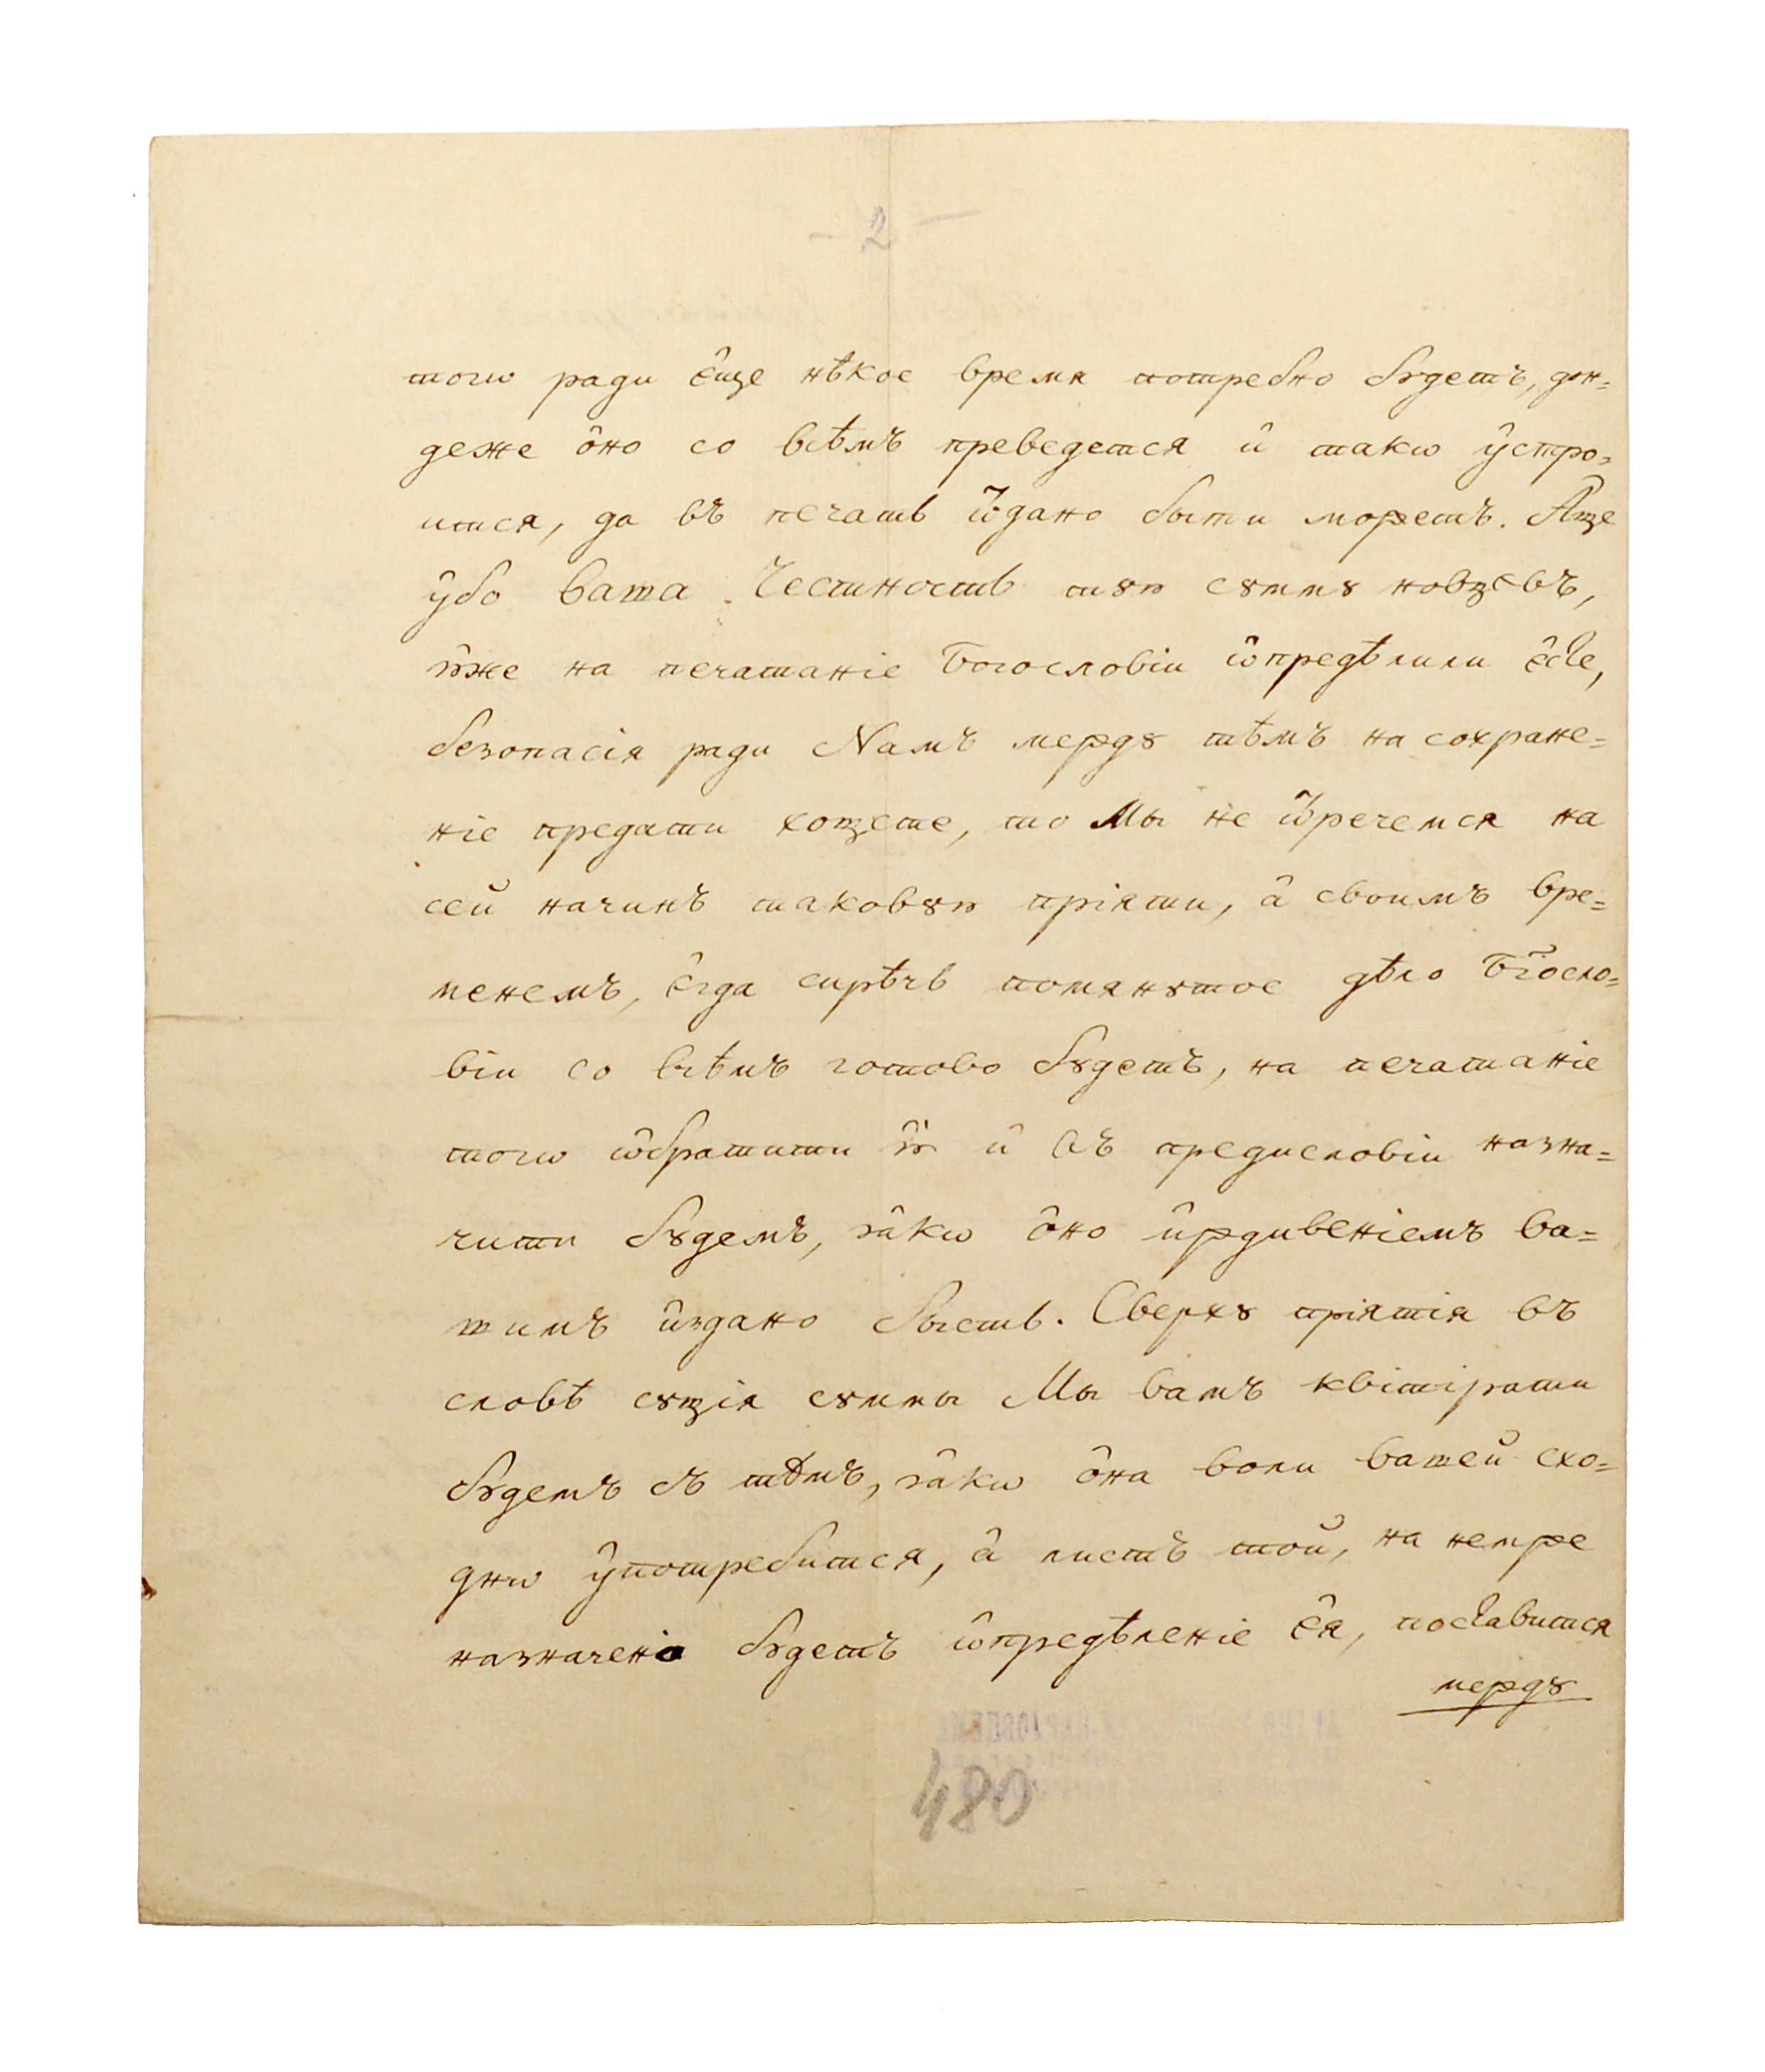 - 2 -
тогѡ ради еще нѣкое время потребно бꙋдетъ, дон=
деже оно со всѣмъ преведется и такѡ устро=
ится, да въ печать ѿдано быти можетъ. Аще
убо Ваша Честность тꙋю сꙋммꙋ новцевъ,
юже на печатаніе Богословіи ѡпредѣлили есте,
безопасія ради Намъ между тѣмъ на сохране=
ніе предати хощете, то Мы не ѿречемся на
сей начинъ таковꙋю пріяти, а своимъ вре=
менемъ, егда сирѣчь помянꙋтое дѣло Бгосло=
віи со всѣмъ готово бꙋдетъ, на печатаніе
тогѡ ѡбратити ю и въ предисловіи назна=
чити бꙋдемъ, якѡ оно иждивеніемъ ва=
шимъ издано бысть. Сверхꙋ пріятія въ
словѣ сꙋщія сꙋммы Мы вамъ квітірати
бꙋдемъ съ тѣмъ, якѡ она воли вашей схо=
днѡ употребится, а листъ той, на немже
назначено бꙋдетъ ѡпредѣленіе ея, поставится
междꙋ
480